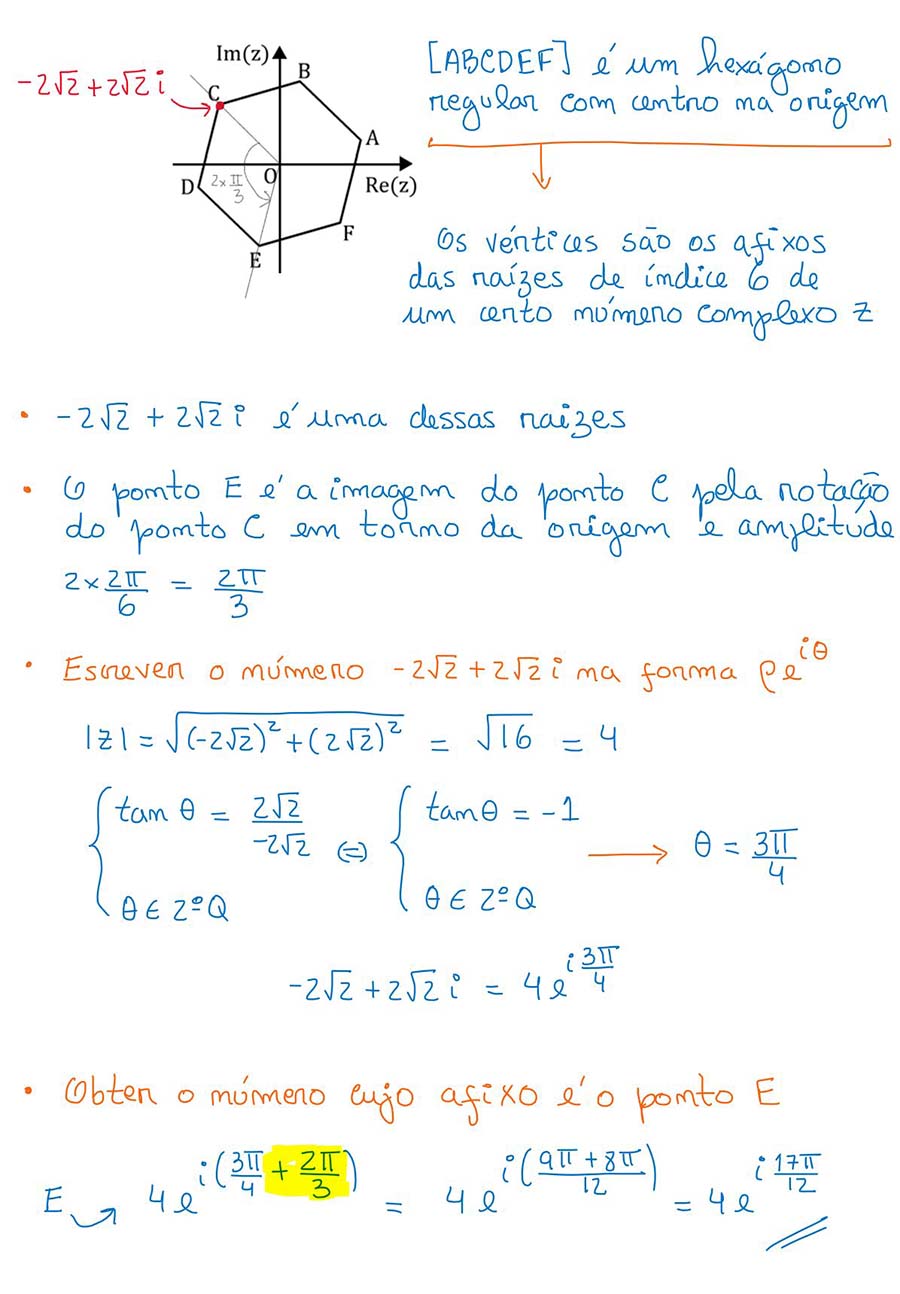 Im(z)
B
-2√2 + 2√2 i
C
A
O
D
2×π/3
Re(z)
F
E
[ABCDEF] é um hexágono
regular com centro na origem
Os vértices são os afixos
das raízes de índice 6 de
um certo número complexo z
• -2√2 + 2√2 i é uma dessas raizes
• O ponto E é a imagem do ponto C pela rotação
do ponto C em torno da origem e amplitude
2 × 2π/6 = 2π/3
• Escrever o número -2√2 + 2√2 i na forma ρe^{iθ}
|z| = √((-2√2)² + (2√2)²) = √16 = 4
{ tan θ = 2√2/-2√2 ⇔ { tan θ = -1 → θ = 3π/4
θ ∈ 2ºQ θ ∈ 2ºQ
-2√2 + 2√2 i = 4e^{i 3π/4}
• Obter o número cujo afixo é o ponto E
E 4e^{i(3π/4 + 2π/3)} = 4e^{i(9π + 8π/12)} = 4e^{i 17π/12}